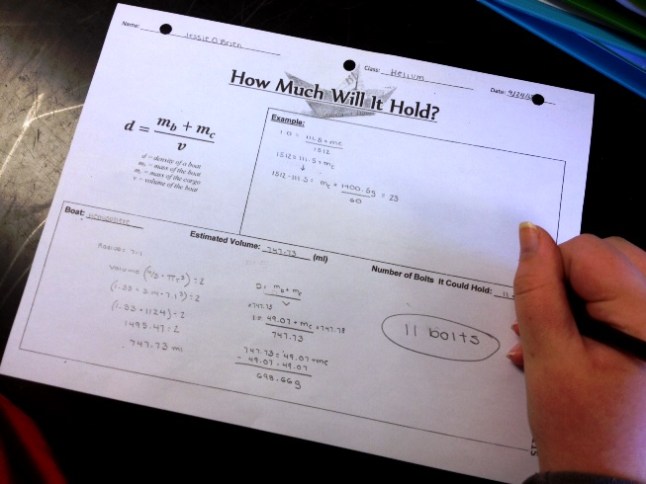 Name: Jessie O'Brien
Class: Helium
Date:
How Much Will It Hold?
d = mb + mc
v
d = density of a boat
mb = mass of the boat
mc = mass of the cargo
v = volume of the boat
Example:
1.0 = 111.5 + mc
1512
1512 = 111.5 + mc
1512 - 111.5 = mc = 1400.5g = 23
60
Boat:
Estimated Volume: 747.73 (ml)
Number of Bolts It Could Hold: 11
volume (4/3 · πr³) ÷ 2
1495.47 ÷ 2
747.73 ml
D = mb + mc
v
x747.73
1 = 49.07 + mc x747.73
747.73
747.73 = 49.07 + mc
- 49.07 - 49.07
698.66g
11 bolts